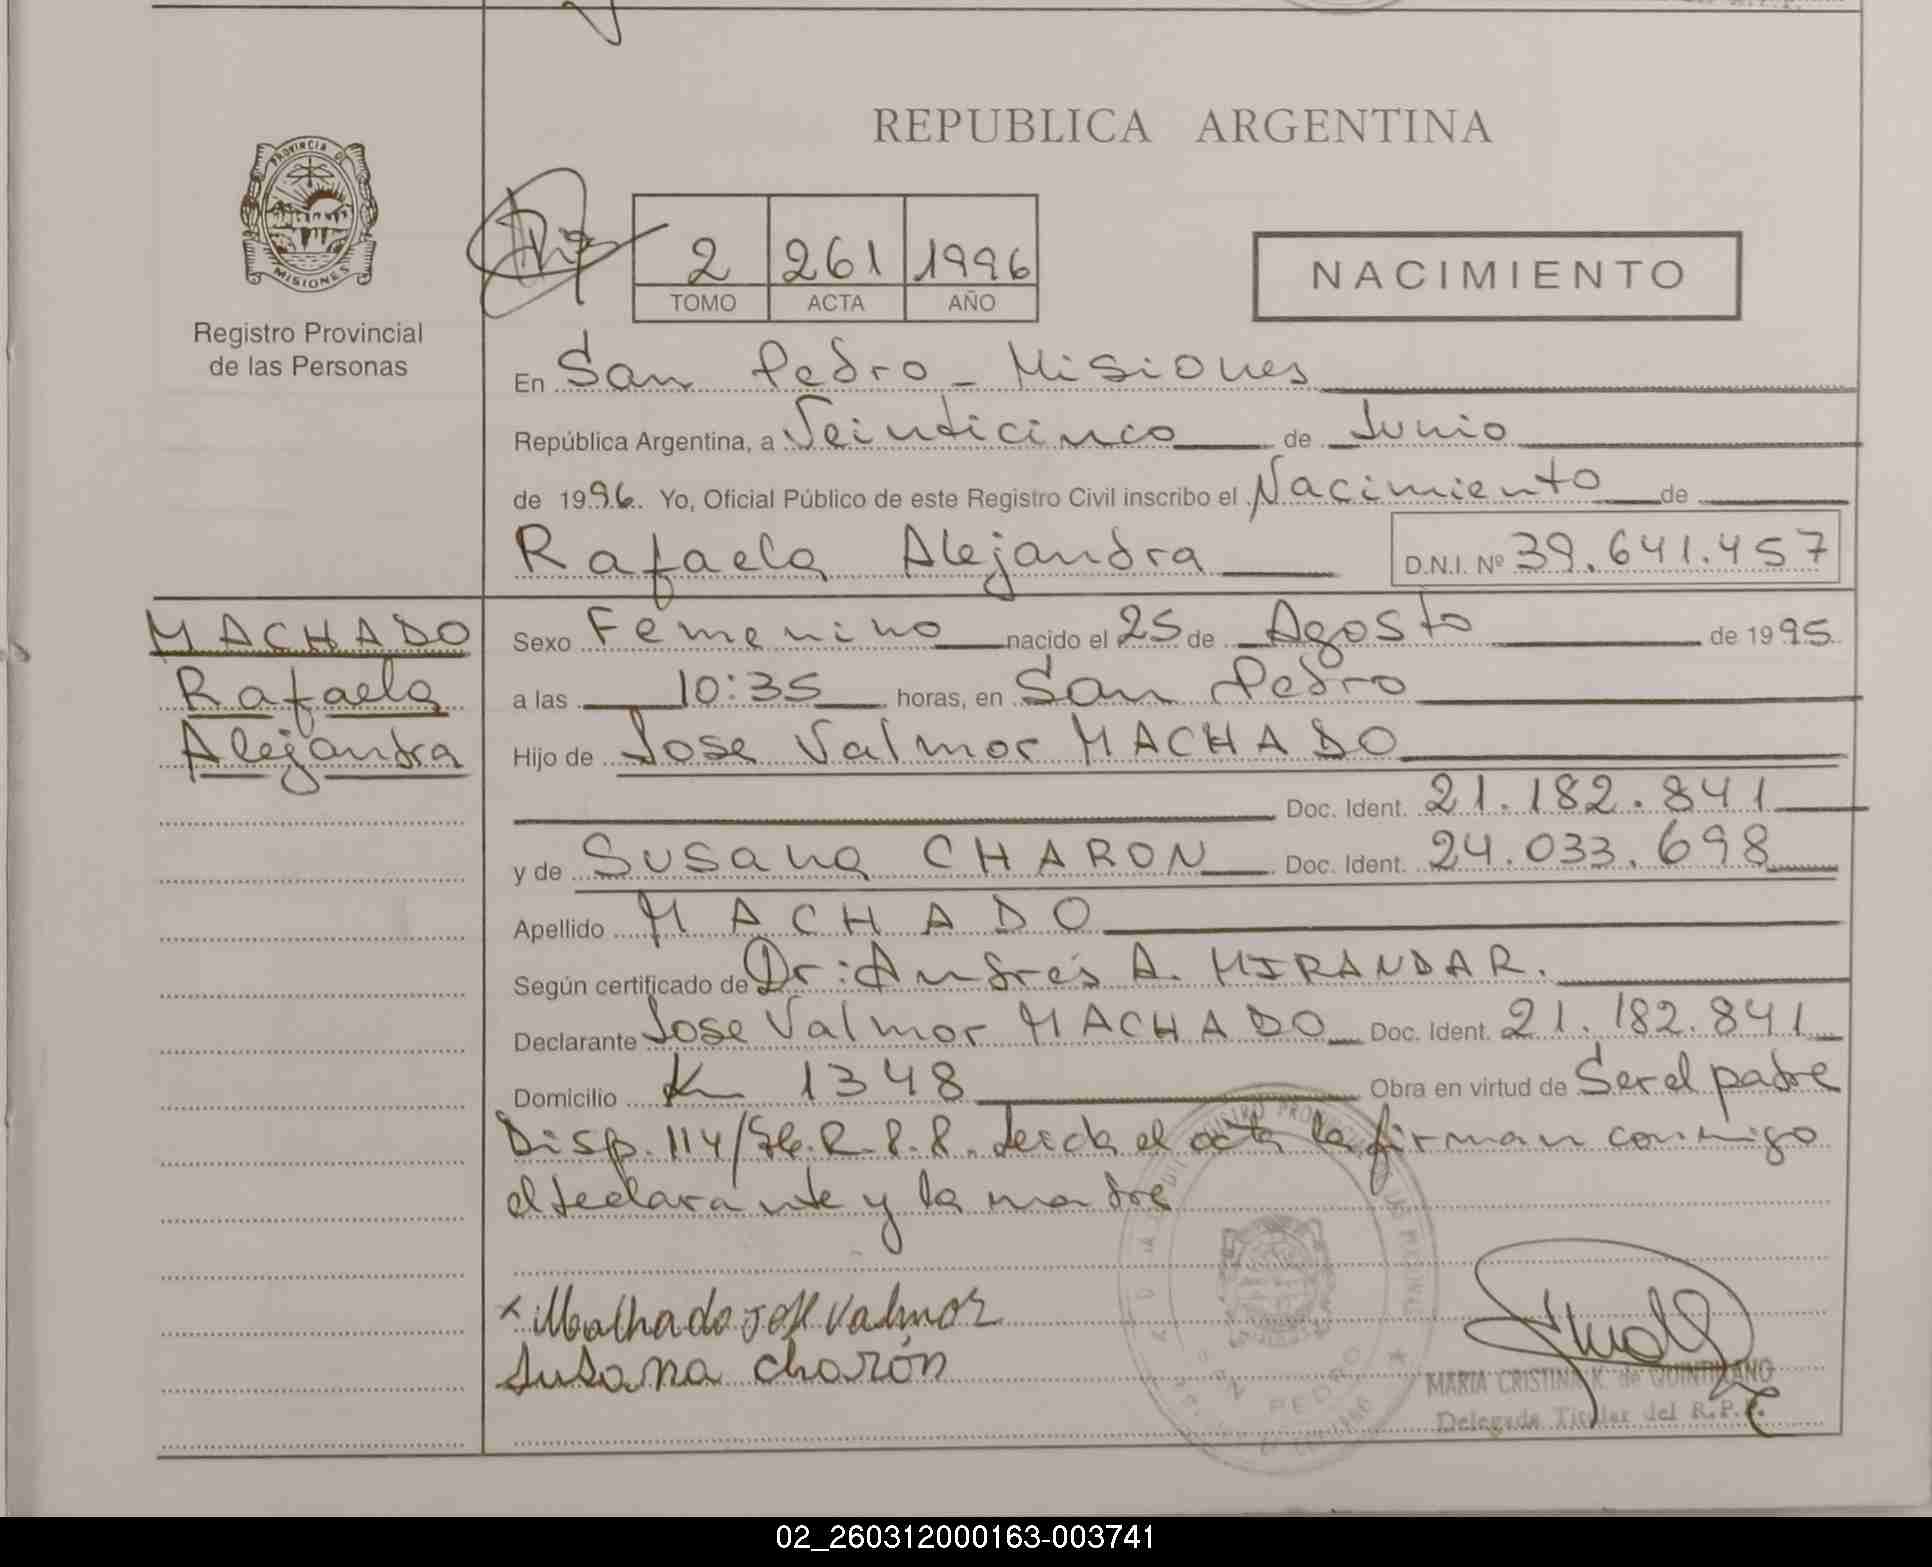 REPUBLICA ARGENTINA
PROVINCIA DE
MISIONES
Registro Provincial
de las Personas
2 261 1996
TOMO ACTA AÑO
NACIMIENTO
En San Pedro - Misiones
República Argentina, a Veinticinco de Junio
de 1996. Yo, Oficial Público de este Registro Civil inscribo el Nacimiento de
Rafaela Alejandra D.N.I. Nº 39.641.457
MACHADO
Rafaela
Alejandra
Sexo Femenino nacido el 25 de Agosto de 1995
a las 10:35 horas, en San Pedro
Hijo de Jose Valmor MACHADO
Doc. Ident. 21.182.841
y de Susana CHARON Doc. Ident. 24.033.698
Apellido MACHADO
Según certificado de Dr: Andrés A. MIRANDAR.
Declarante Jose Valmor MACHADO Doc. Ident. 21.182.841
Domicilio K 1348 Obra en virtud de Ser el padre
Disp. 114/ Leida el acta la firman conmigo
el declarante y la madre
x Malhado José Valmor
Susana Charón
SAN PEDRO
MARIA CRISTINA K. de QUINTINANO
Delegada Titular del R.P.P.
02_260312000163-003741